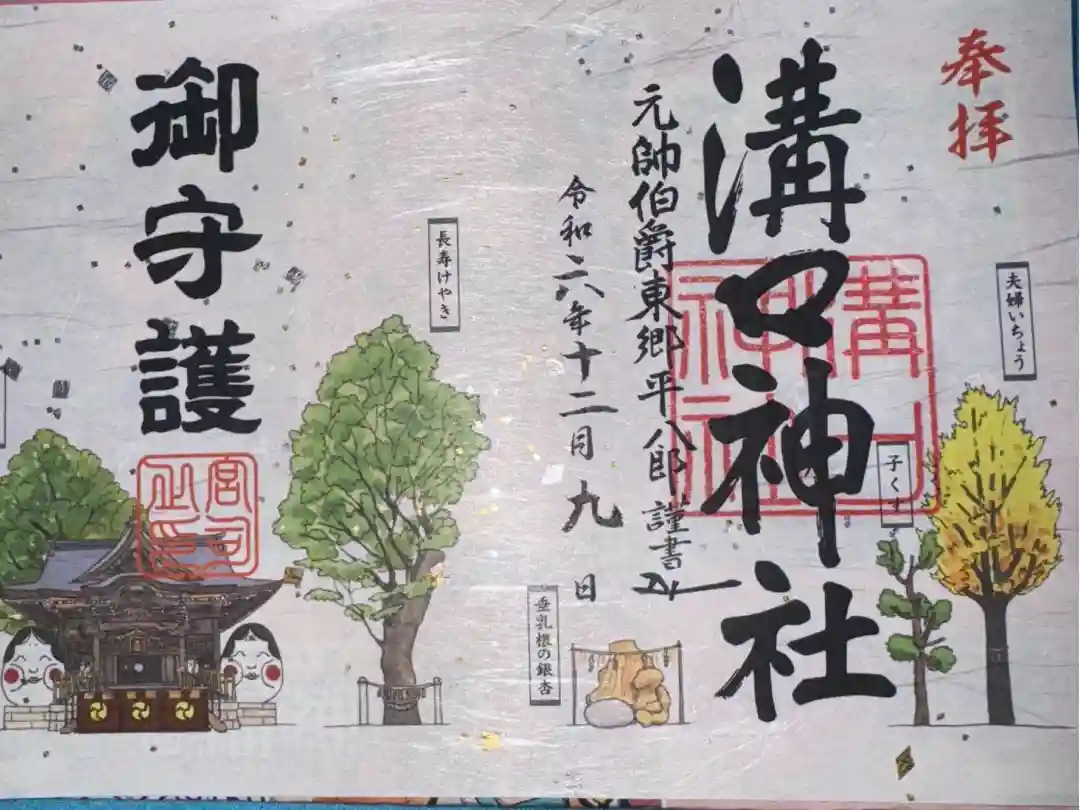 奉拝
夫婦いちょう
溝口神社
溝口神社
子くす
元帥伯爵東郷平八郎謹書
令和六年十二月九日
垂乳根の銀杏
長寿けやき
御守護
宮司之印